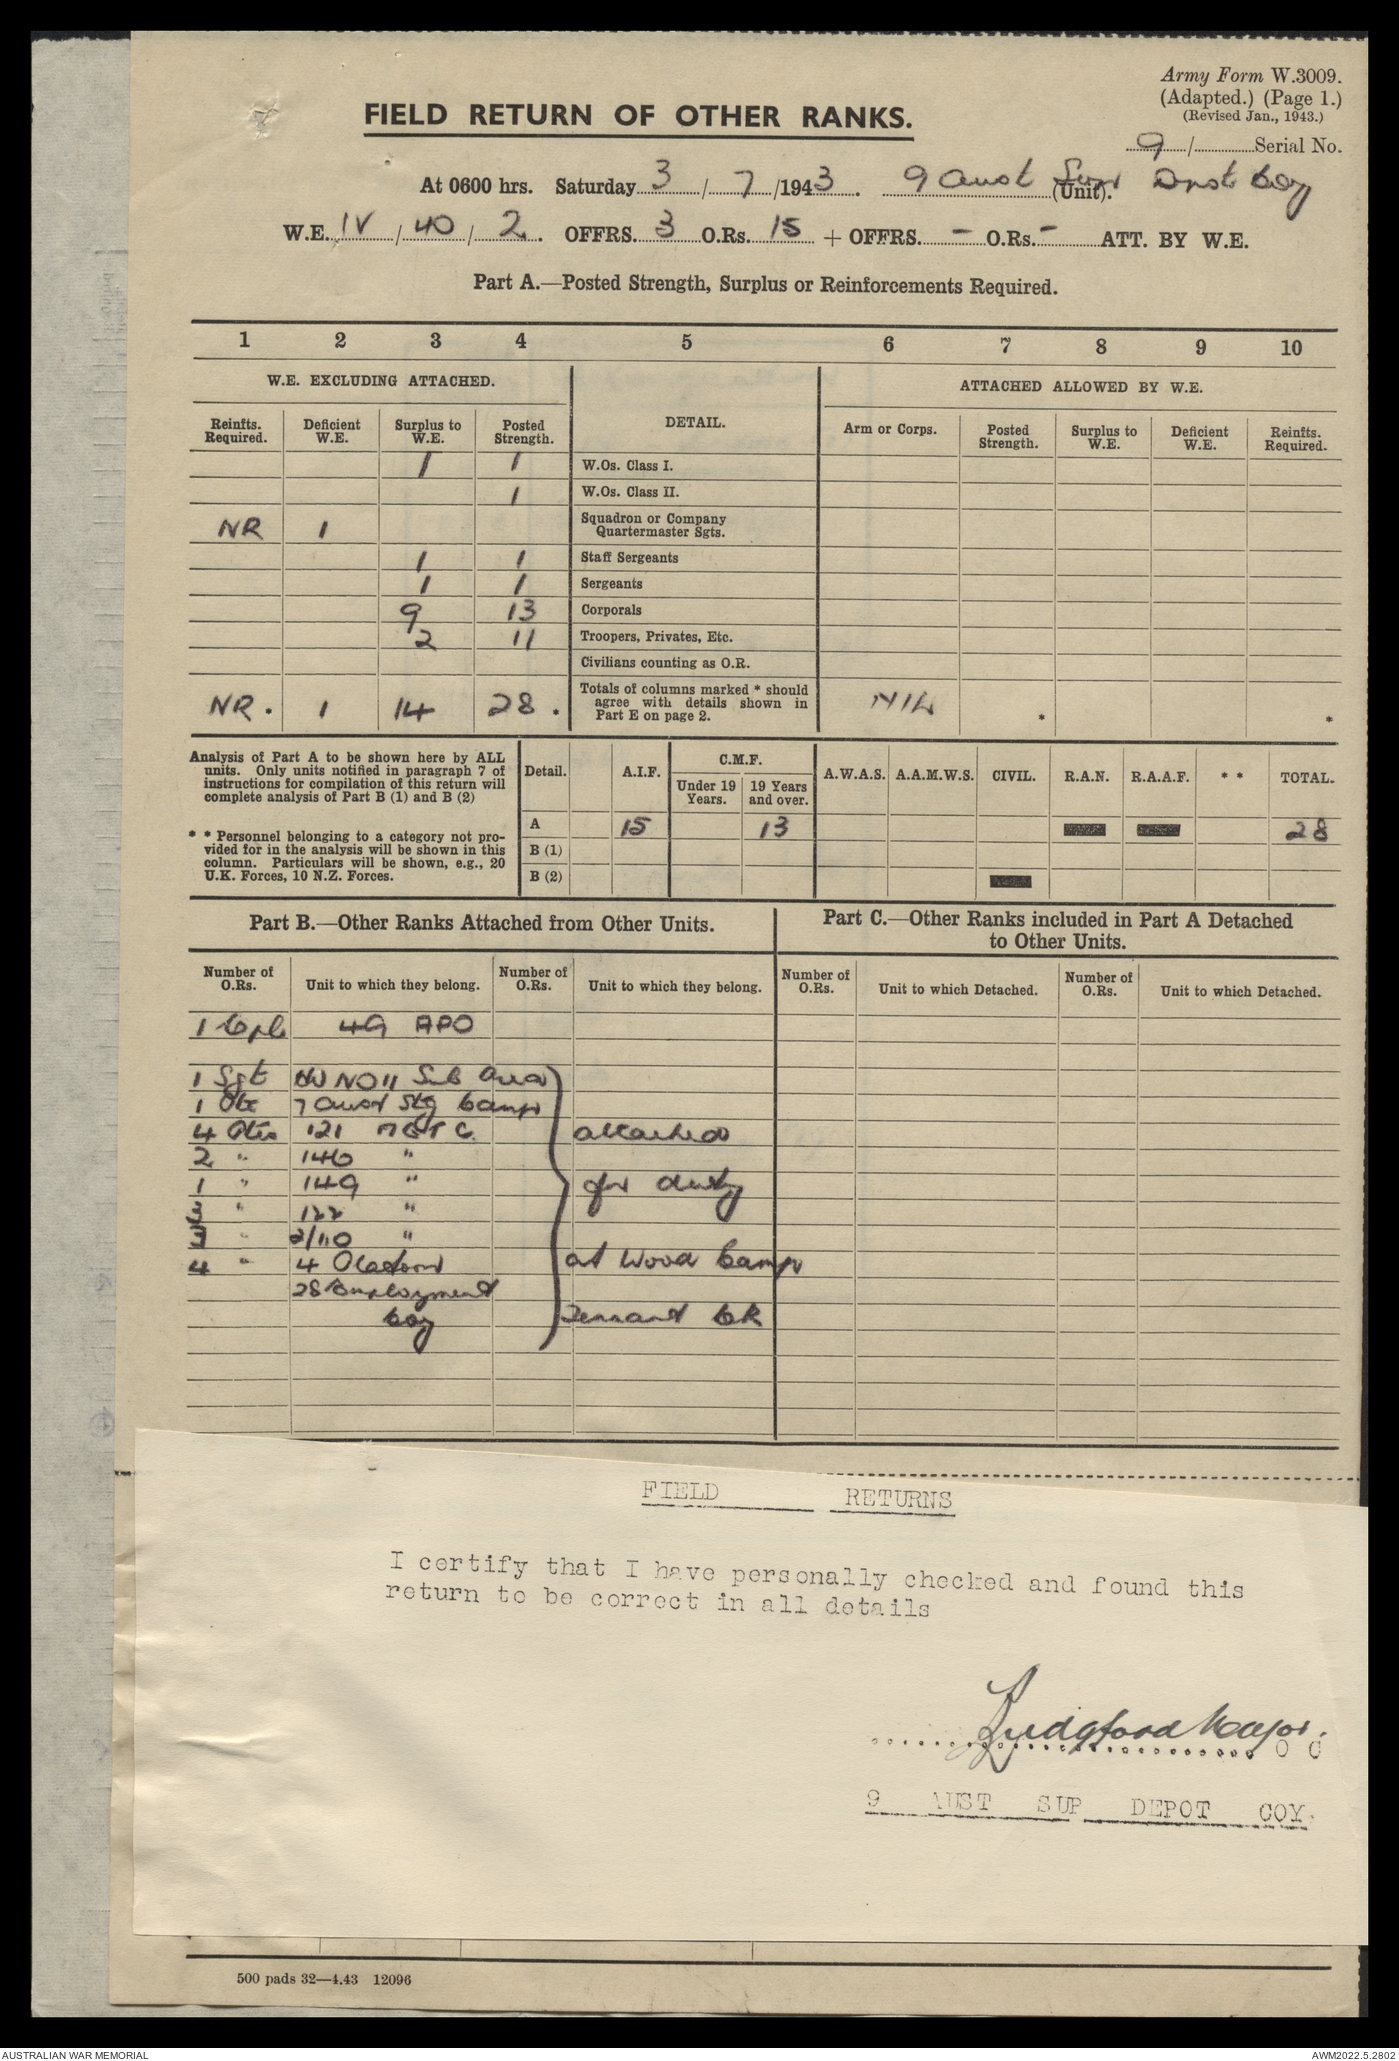 Army Form W.3009.
(Adapted.) (Page 1.)
(Revised Jan., 1943.)
FIELD RETURN OF OTHER RANKS.
9 / Serial No.
At 0600 hrs. Saturday 3 / 7 /1943. 9 Aust Supr Depot Coy (Unit).
W.E. IV / 40 / 2. OFFRS. 3 O.Rs. 15 + OFFRS. - O.Rs. - ATT. BY W.E.
Part A.—Posted Strength, Surplus or Reinforcements Required.
1 2 3 4 5 6 7 8 9 10
W.E. EXCLUDING ATTACHED. DETAIL. ATTACHED ALLOWED BY W.E.
Reinfts. Required. Deficient W.E. Surplus to W.E. Posted Strength. Arm or Corps. Posted Strength. Surplus to W.E. Deficient W.E. Reinfts. Required.
1 1 W.Os. Class I.
1 W.Os. Class II.
NR 1 Squadron or Company Quartermaster Sgts.
1 1 Staff Sergeants
1 1 Sergeants
9 13 Corporals
2 11 Troopers, Privates, Etc.
Civilians counting as O.R.
NR. 1 14 28. Totals of columns marked * should agree with details shown in Part E on page 2. NIL * *
Analysis of Part A to be shown here by ALL
units. Only units notified in paragraph 7 of
instructions for compilation of this return will
complete analysis of Part B (1) and B (2)
* * Personnel belonging to a category not pro-
vided for in the analysis will be shown in this
column. Particulars will be shown, e.g., 20
U.K. Forces, 10 N.Z. Forces.
Detail. A.I.F. C.M.F. Under 19 Years. 19 Years and over. A.W.A.S. A.A.M.W.S. CIVIL. R.A.N. R.A.A.F. * * TOTAL.
A 15 13 28
B (1)
B (2)
Part B.—Other Ranks Attached from Other Units.
Part C.—Other Ranks included in Part A Detached
to Other Units.
Number of O.Rs. Unit to which they belong. Number of O.Rs. Unit to which they belong. Number of O.Rs. Unit to which Detached. Number of O.Rs. Unit to which Detached.
1 Cpl 49 APO
1 Sgt HQ NO 11 Sub Area
1 Pte 7 Aust Stg Camp
4 Ptes 121 M G T C. attached
2 " 146 "
1 " 149 " for duty
3 " 122 "
3 " 2/110 "
4 " 4 Platoon at Wood Camp
28 Employment
Coy Tennant Ck
FIELD RETURNS
I certify that I have personally checked and found this
return to be correct in all details
Ludgford Major.
O C
9 AUST SUP DEPOT COY.
500 pads 32—4.43 12096
AUSTRALIAN WAR MEMORIAL
AWM2022.5.2802